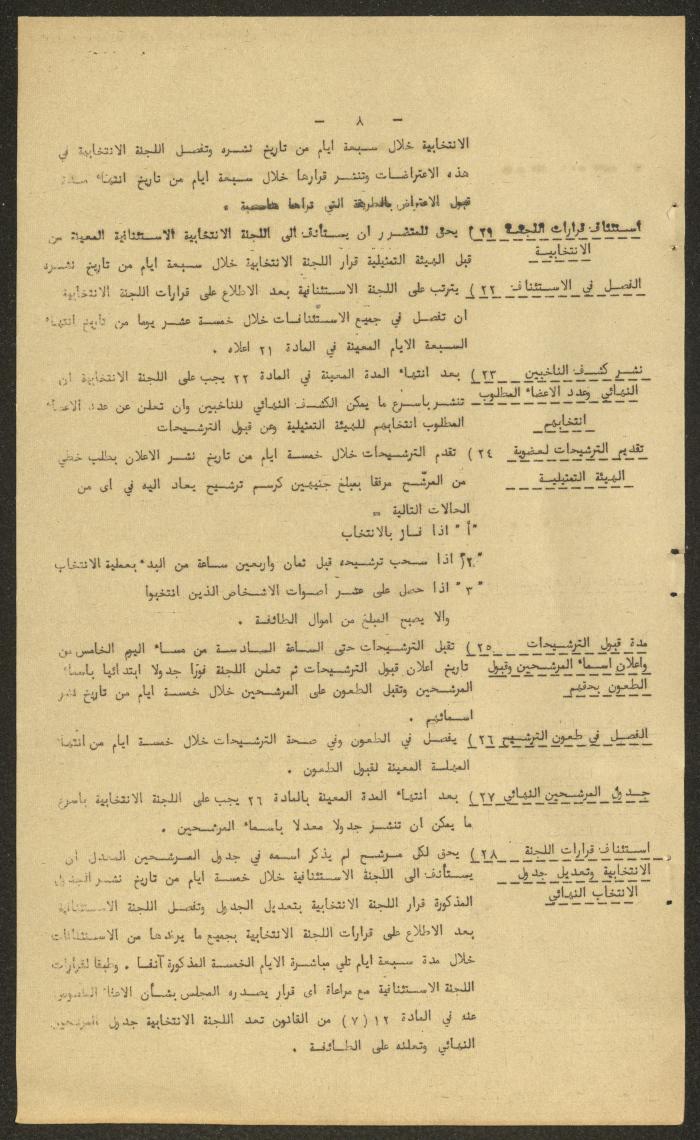 - ٨ -
الانتخابية خلال سبعة ايام من تاريخ نشره وتفصل اللجنة الانتخابية في
هذه الاعتراضات وتنشر قرارها خلال سبعة ايام من تاريخ انتهاء مدة
قبول الاعتراض بالطريقة التي تراها مناسبة .
استئناف قرارات اللجنة ٢٩) يحق للمتضرر ان يستأنف الى اللجنة الانتخابية الاستئنافية المعينة من
الانتخابية
قبل الهيئة التمثيلية قرار اللجنة الانتخابية خلال سبعة ايام من تاريخ نشره
الفصل في الاستئناف ٢٢) يترتب على اللجنة الاستئنافية بعد الاطلاع على قرارات اللجنة الانتخابية
ان تفصل في جميع الاستئنافات خلال خمسة عشر يوما من تاريخ انتهاء
السبعة الايام المعينة في المادة ٢١ اعلاه .
نشر كشف الناخبين ٢٣) بعد انتهاء المدة المعينة في المادة ٢٢ يجب على اللجنة الانتخابية ان
النهائي وعدد الاعضاء المطلوب تنشر باسرع ما يمكن الكشف النهائي للناخبين وان تعلن عن عدد الاعضاء
انتخابهم المطلوب انتخابهم للهيئة التمثيلية وعن قبول الترشيحات
تقديم الترشيحات لعضوية ٢٤) تقدم الترشيحات خلال خمسة ايام من تاريخ نشر الاعلان بطلب خطي
الهيئة التمثيلية من المرشّح مرفقا بمبلغ جنيهين كرسم ترشيح يعاد اليه في اى من
الحالات التالية =
"أ" اذا فاز بالانتخاب
"٢" اذا سحب ترشيحه قبل ثمان واربعين ساعة من البدء بعملية الانتخاب
"٣" اذا حصل على عشر اصوات الاشخاص الذين انتخبوا
والا يصبح المبلغ من اموال الطائفة .
مدة قبول الترشيحات ٢٥) تقبل الترشيحات حتى الساعة السادسة من مساء اليوم الخامس من
واعلان اسماء المرشحين وقبول تاريخ اعلان قبول الترشيحات ثم تعلن اللجنة فورًا جدولا ابتدائيا باسماء
الطعون بحقهم المرشحين وتقبل الطعون على المرشحين خلال خمسة ايام من تاريخ نشر
اسمائهم .
الفصل في طعون الترشيح ٢٦) يفصل في الطعون وفي صحة الترشيحات خلال خمسة ايام من انتهاء
المهلة المعينة لقبول الطعون .
جدول المرشحين النهائي ٢٧) بعد انتهاء المدة المعينة بالمادة ٢٦ يجب على اللجنة الانتخابية باسرع
ما يمكن ان تنشر جدولا معدلا باسماء المرشحين .
استئناف قرارات اللجنة ٢٨) يحق لكل مرشح لم يذكر اسمه في جدول المرشحين المعدل ان
الانتخابية وتعديل جدول يستأنف الى اللجنة الاستئنافية خلال خمسة ايام من تاريخ نشر الجدول
الانتخاب النهائي المذكورة قرار اللجنة الانتخابية بتعديل الجدول وتفصل اللجنة الاستئنافية
بعد الاطلاع على قرارات اللجنة الانتخابية بجميع ما يردها من الاستئنافات
خلال مدة سبعة ايام تلي مباشرة الايام الخمسة المذكورة آنفا . وطبقا لقرارات
اللجنة الاستئنافية مع مراعاة اى قرار يصدره المجلس بشأن الاعفاء المنصوص
عنه في المادة ١٢ (٧) من القانون تعد اللجنة الانتخابية جدول المرشحين
النهائي وتعلنه على الطائفة .